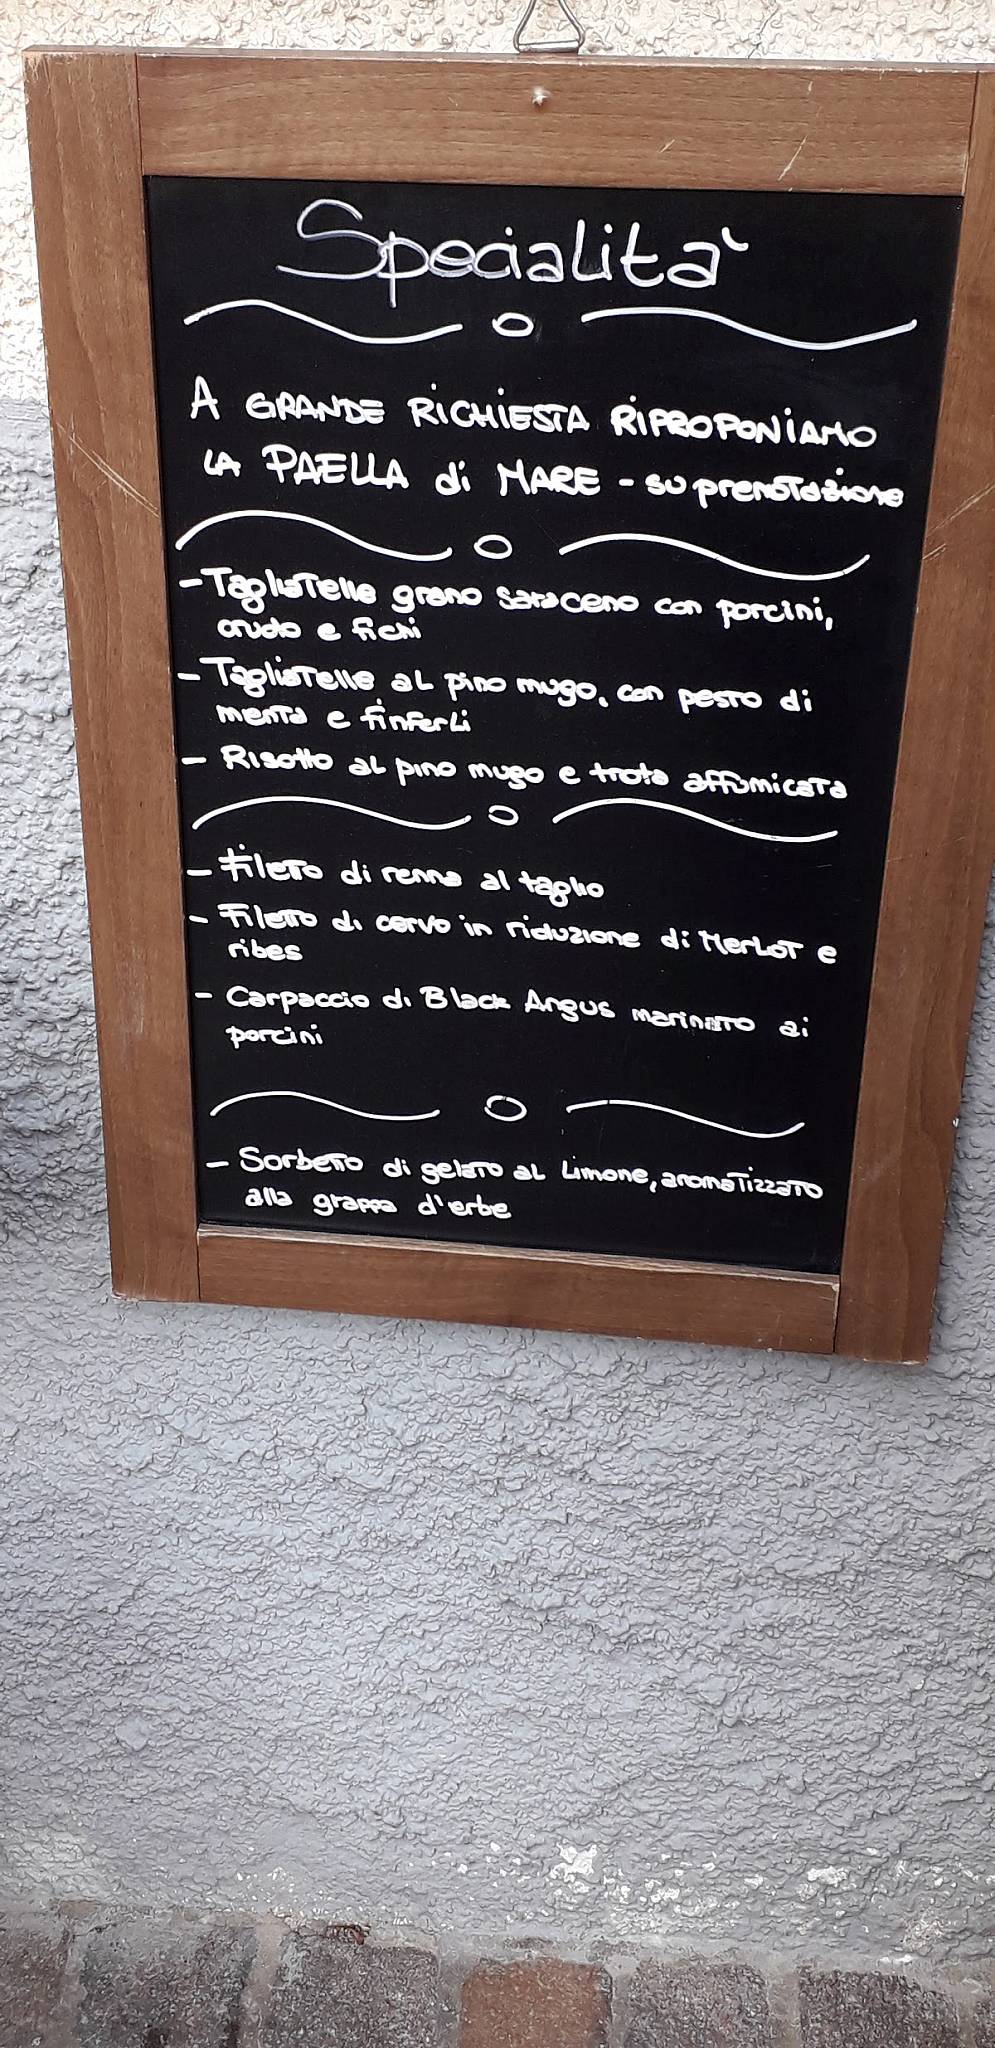 Specialità
A GRANDE RICHIESTA RIPROPONIAMO
LA PAELLA di MARE - su prenotazione
- Tagliatelle grano saraceno con porcini,
crudo e fichi
- Tagliatelle al pino mugo, con pesto di
menta e finferli
- Risotto al pino mugo e trota affumicata
- Filetto di renna al taglio
- Filetto di cervo in riduzione di Merlot e
ribes
- Carpaccio di Black Angus marinato ai
porcini
- Sorbetto di gelato al limone, aromatizzato
alla grappa d'erbe